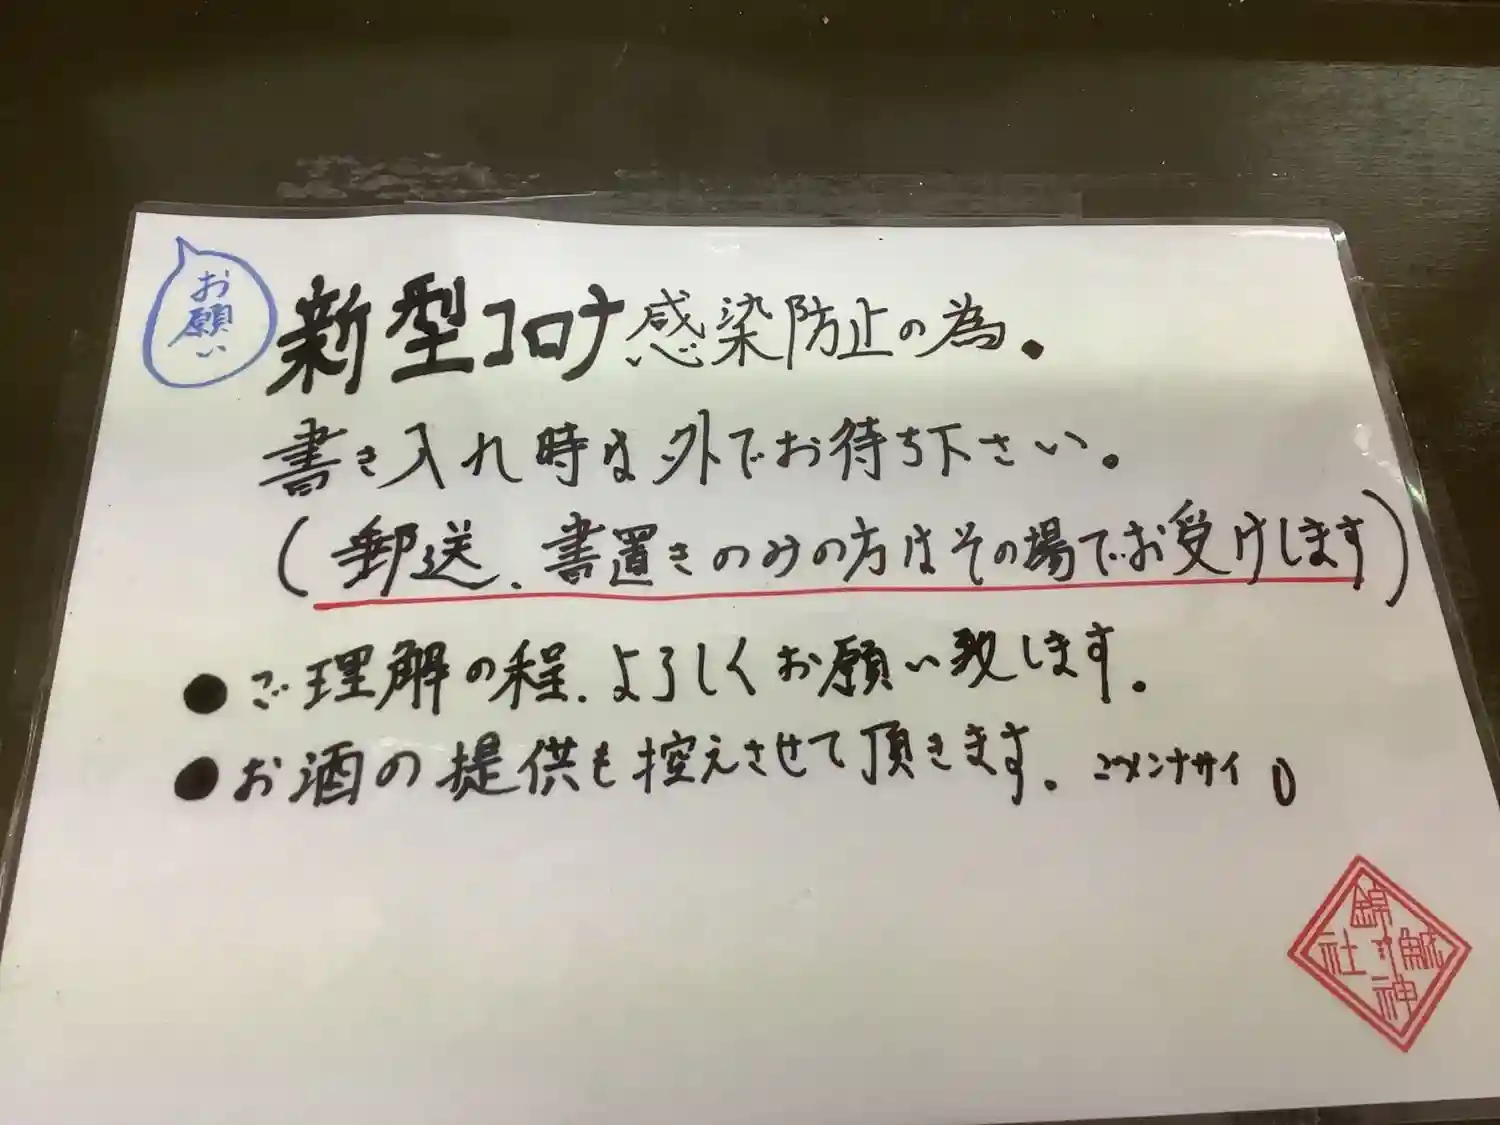 お願い
新型コロナ感染防止の為.
書き入れ時は外でお待ち下さい.
(郵送、書置きのみの方はその場でお受けします)
●ご理解の程、よろしくお願い致します.
●お酒の提供も控えさせて頂きます. ゴメンナサイ
錦
神
社